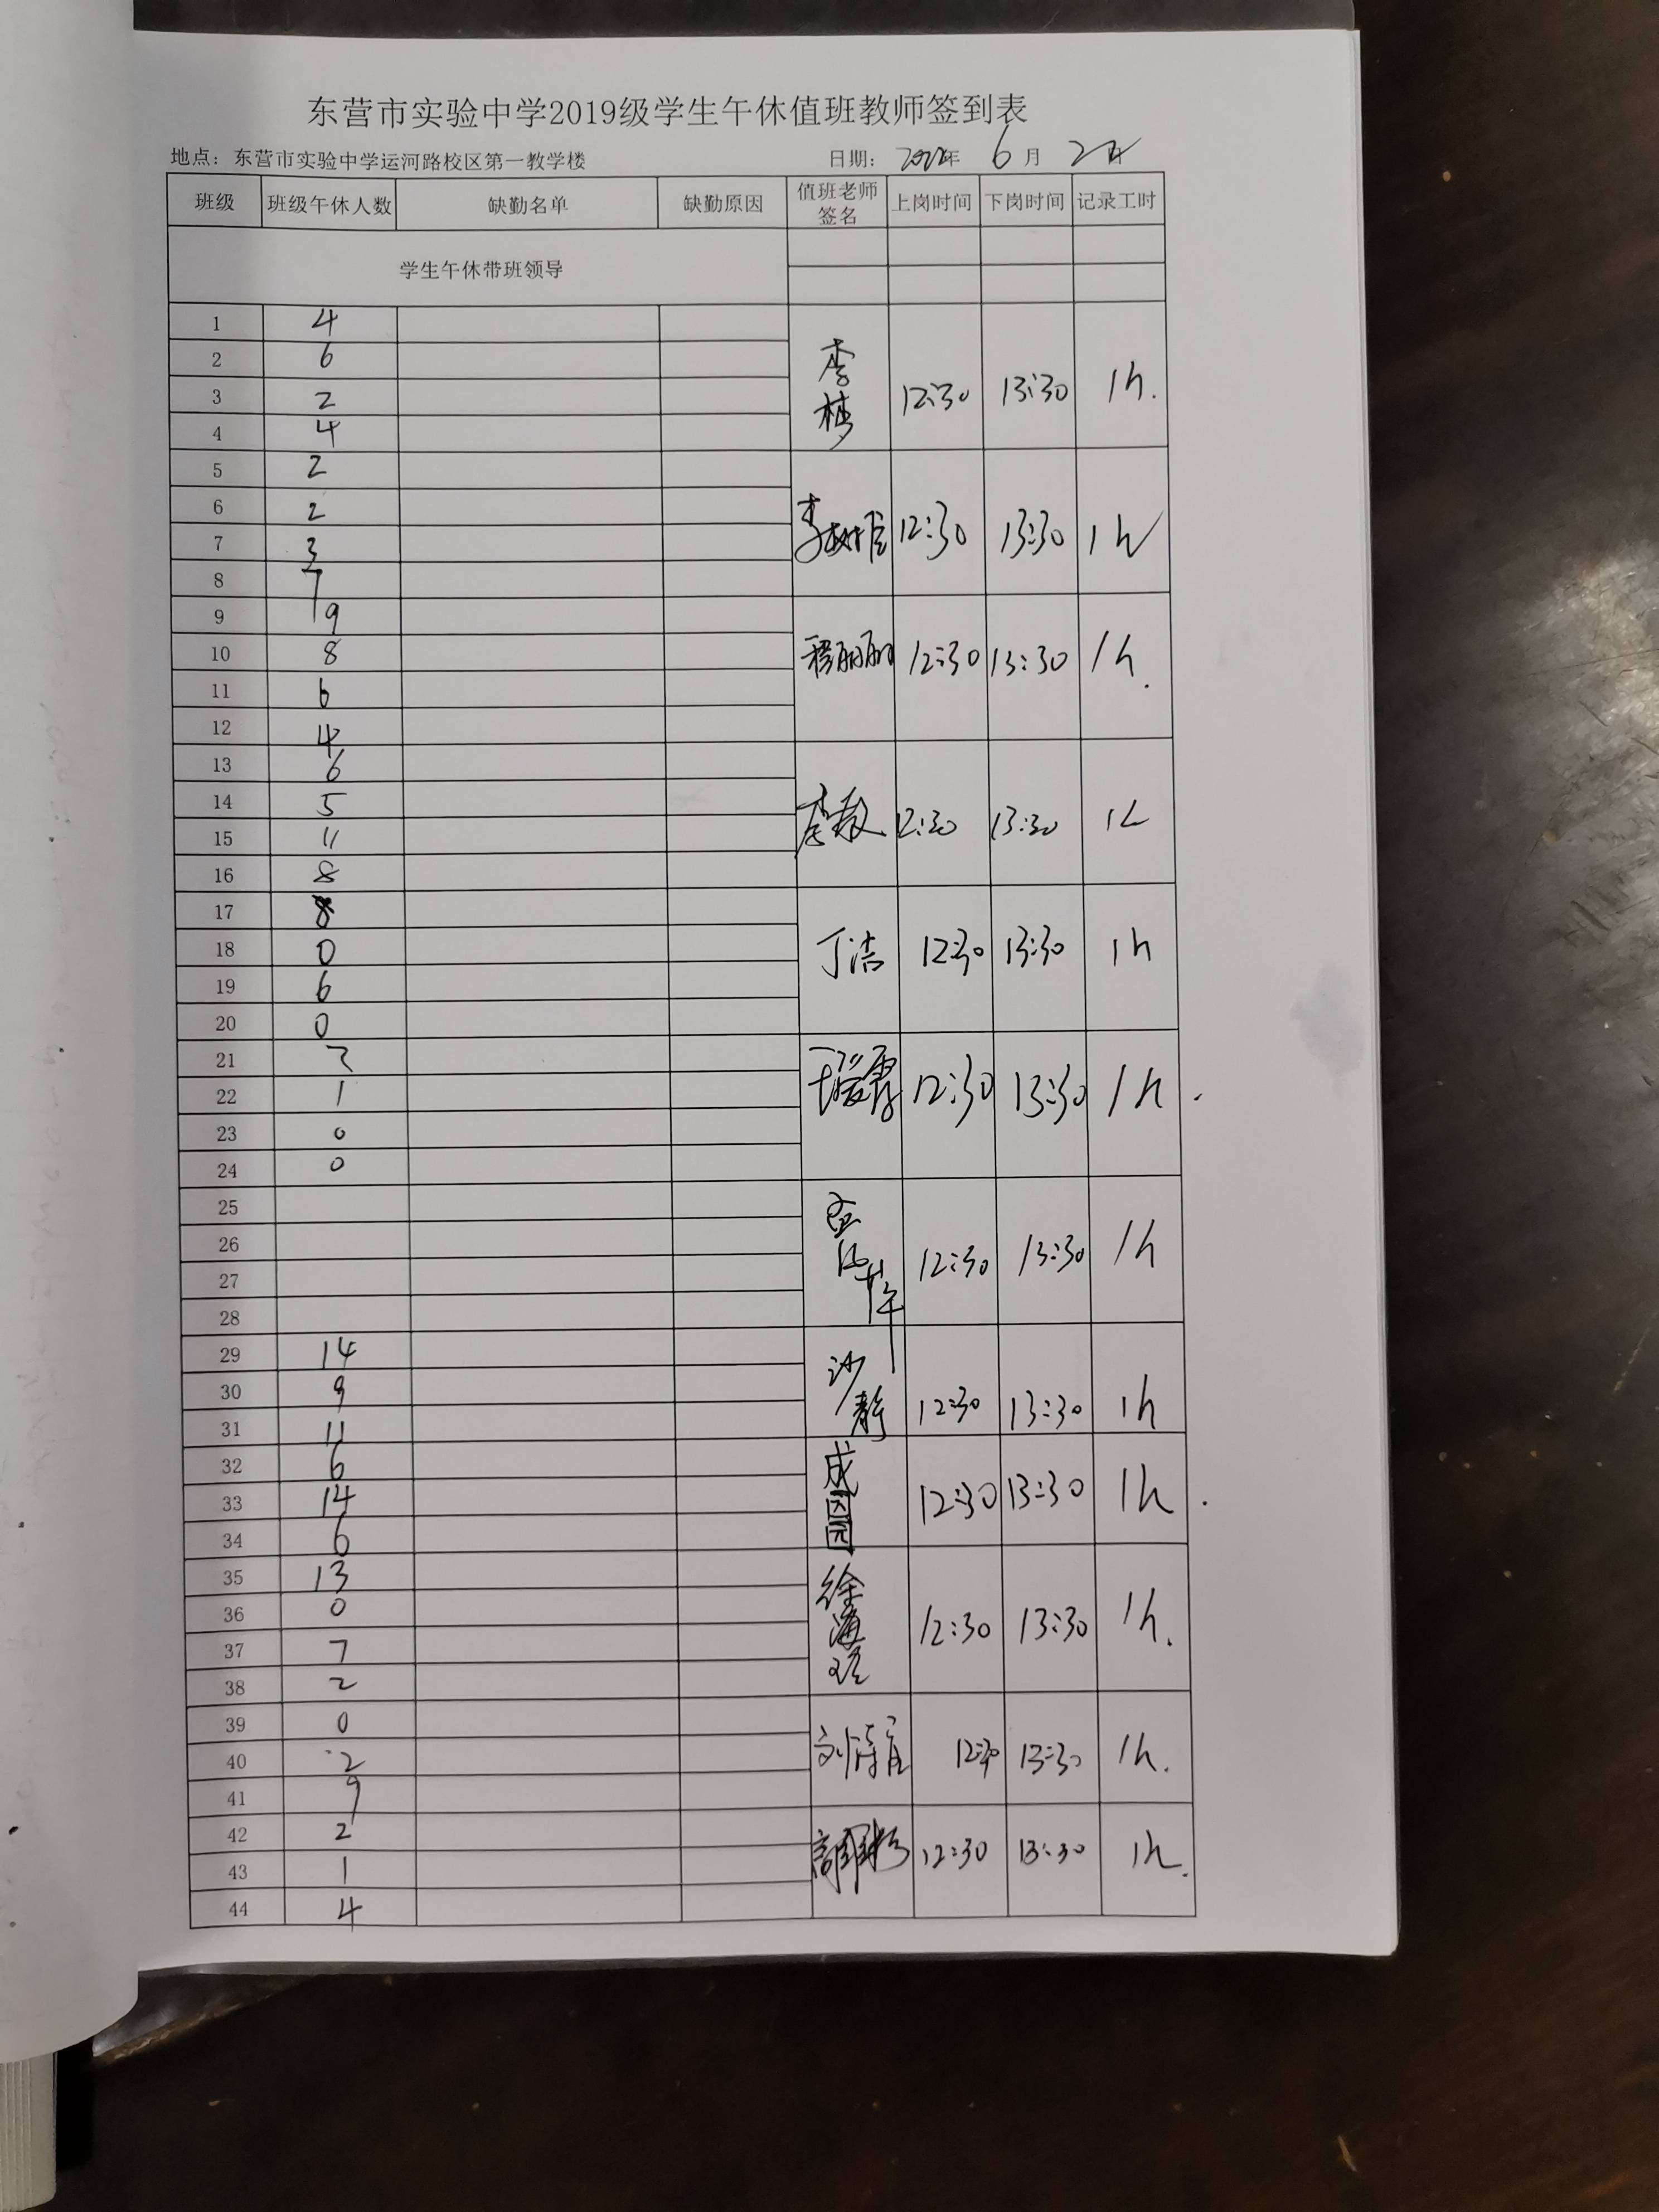 东营市实验中学2019级学生午休值班教师签到表
地点：东营市实验中学运河路校区第一教学楼 日期：2022年 6月 2日
班级 班级午休人数 缺勤名单 缺勤原因 值班老师签名 上岗时间 下岗时间 记录工时
学生午休带班领导
1 4
2 6
3 2 李梦 12:30 13:30 1h.
4 4
5 2
6 2
7 3 12:30 13:30 1h
8 7
9 9
10 8 程丽丽 12:30 13:30 1h.
11 6
12 4
13 6
14 5 12:30 13:30 1h
15 11
16 8
17 8
18 0 丁洁 12:30 13:30 1h
19 6
20 0
21 2
22 1 12:30 13:30 1h.
23 0
24 0
25
26 12:30 13:30 1h
27
28
29 14
30 9 沙静 12:30 13:30 1h
31 11
32 6
33 14 成囡园 12:30 13:30 1h.
34 6
35 13
36 0 徐海 12:30 13:30 1h.
37 7
38 2
39 0
40 2 刘 12:30 13:30 1h.
41 9
42 2
43 1 12:30 13:30 1h.
44 4